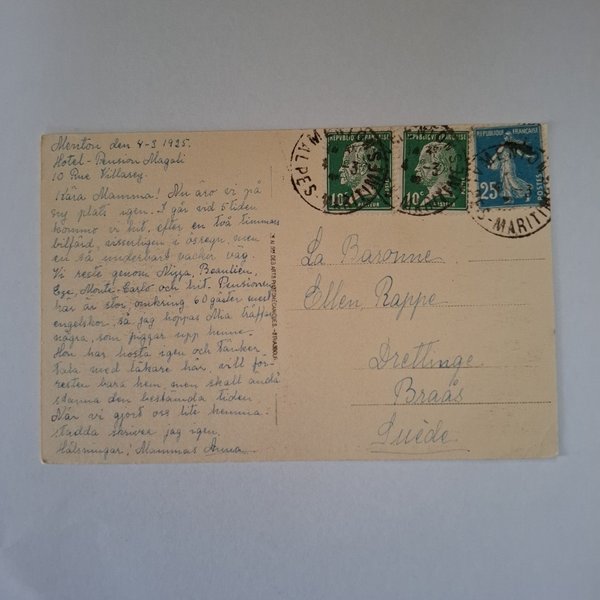 Menton den 4-3 1925.
Hotel-Pension Magali
10 Rue Villarey.
Kära Mamma! Nu äro vi på
ny plats igen. I går vid 5tiden
kommo vi hit, efter en två timmars
bilfärd, visserligen i ösregn men
en så underbart vacker väg.
Vi reste genom Nizza, Beaulieu,
Eze, Monte-Carlo och hit. Pensionen
här är stor, omkring 60 gäster mest
engelskor, så jag hoppas Mia träffar
några, som piggar upp henne.
Hon har hosta igen och tänker
tala med läkare här, vill för-
resten bara hem, men skall ändå
stanna den bestämda tiden
När vi gjort oss lite hemma-
stadda skriver jag igen.
Hälsningar, Mammas Anna
La Baronne
Ellen Rappe
Drettinge
Braås
Suède
REPUBLIQUE FRANÇAISE
10c
POSTES
REPUBLIQUE FRANÇAISE
10c
REPUBLIQUE FRANÇAISE
25c
POSTES
ALPES-MARITIMES
S-MARITIM